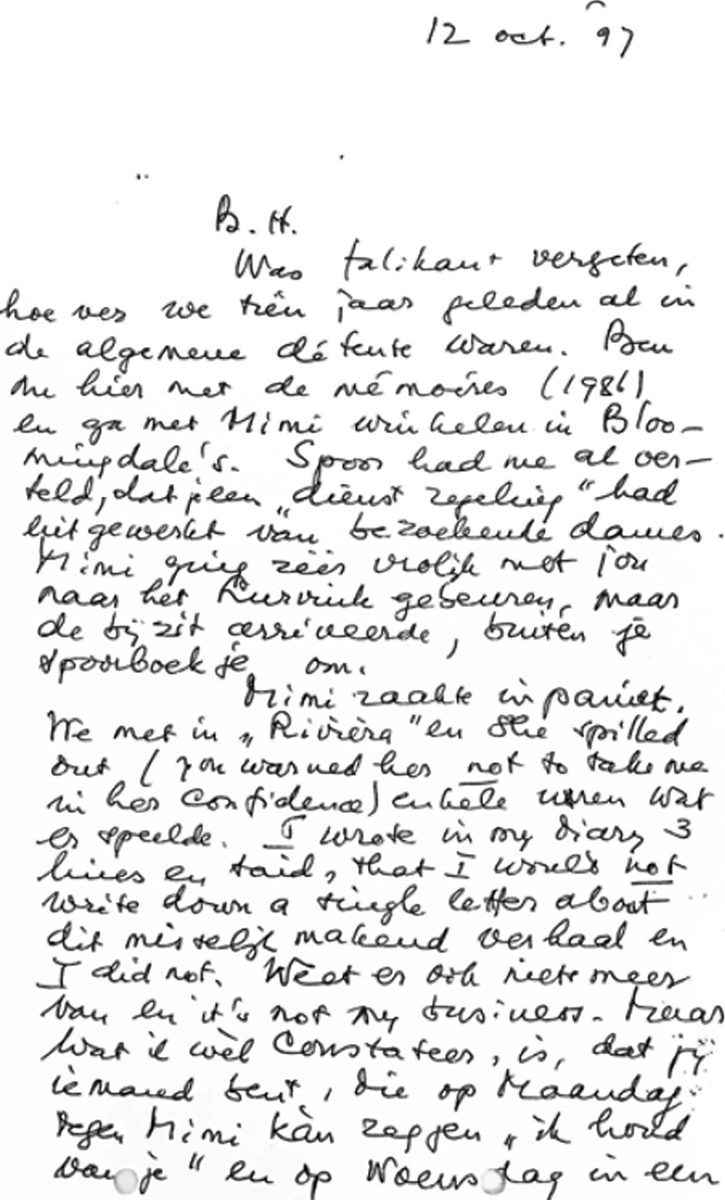 12 oct. 97
B.H.
Was falikant vergeten,
hoe ver we tien jaar geleden al in
de algemene détente waren. Ben
nu hier met de mémoires (1986)
en ga met Mimi winkelen in Bloo-
mingdale's. Spoor had me al ver-
teld, dat je een „dienst regeling" had
uitgewerkt van bezoekende dames.
Mimi ging zéér vrolijk met jou
naar het Kurvink gebeuren, maar
de bijzit arriveerde, buiten je
spoorboekje om.
Mimi raakte in paniek.
We met in „Rivièra" en She spilled
out (you warned her not to take me
in her confidence) enkele uren wat
er speelde. I wrote in my diary 3
lines en said, that I would not
write down a single letter about
dit misselijk makend verhaal en
I did not. Weet er ook niets meer
van en it's not my business. Maar
wat ik wèl constateer, is, dat jij
iemand bent, die op Maandag
tegen Mimi kàn zeggen „ik houd
van je" en op Woensdag in een